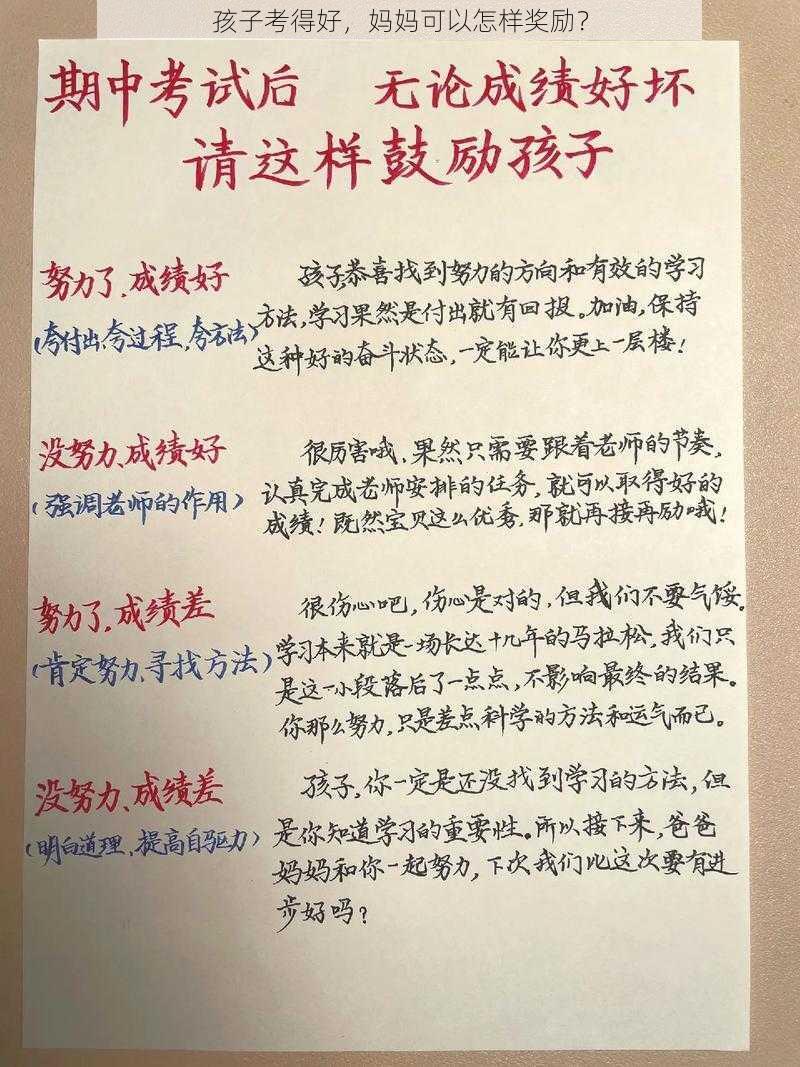 孩子考得好，妈妈可以怎样奖励？
期中考试后 无论成绩好坏
请这样鼓励孩子
努力了、成绩好
(夸付出、夸过程,夸方法)
孩子,恭喜找到努力的方向和有效的学习
方法,学习果然是付出就有回报。加油,保持
这种好的奋斗状态,一定能让你更上一层楼!
没努力、成绩好
(强调老师的作用)
很厉害哦、果然只需要跟着老师的节奏,
认真完成老师安排的任务,就可以取得好的
成绩!既然宝贝这么优秀,那就再接再励哦!
努力了,成绩差
(肯定努力、寻找方法)
很伤心吧,伤心是对的,但我们不要气馁。
学习本来就是一场长达十几年的马拉松,我们只
是这一小段落后了一点点,不影响最终的结果。
你那么努力,只是差点科学的方法和运气而已。
没努力、成绩差
(明白道理,提高自驱力)
孩子,你一定是还没找到学习的方法,但
是你知道学习的重要性。所以接下来,爸爸
妈妈和你一起努力,下次我们比这次要有进
步好吗?